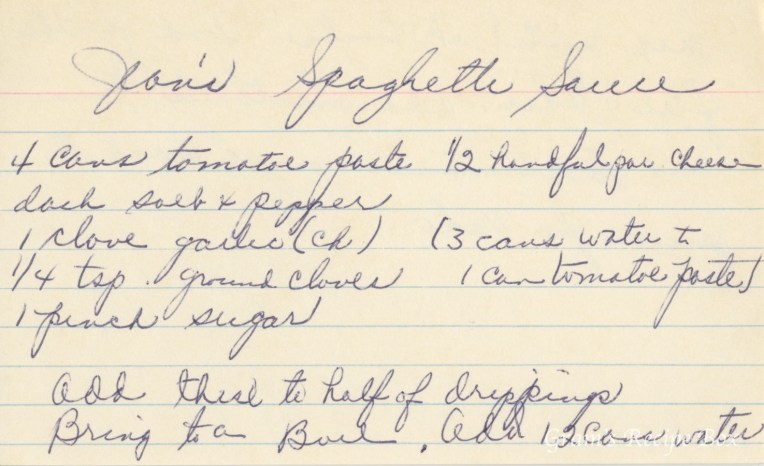 Jean's Spaghetti Sauce
4 cans tomatoe paste 1/2 handful par cheese
dash salt & pepper
1 clove garlic (ch) (3 cans water to
1/4 tsp. ground cloves 1 can tomatoe paste)
1 pinch sugar
Add these to half of drippings
Bring to a Boil, Add 13 Cans water
Recipe Box